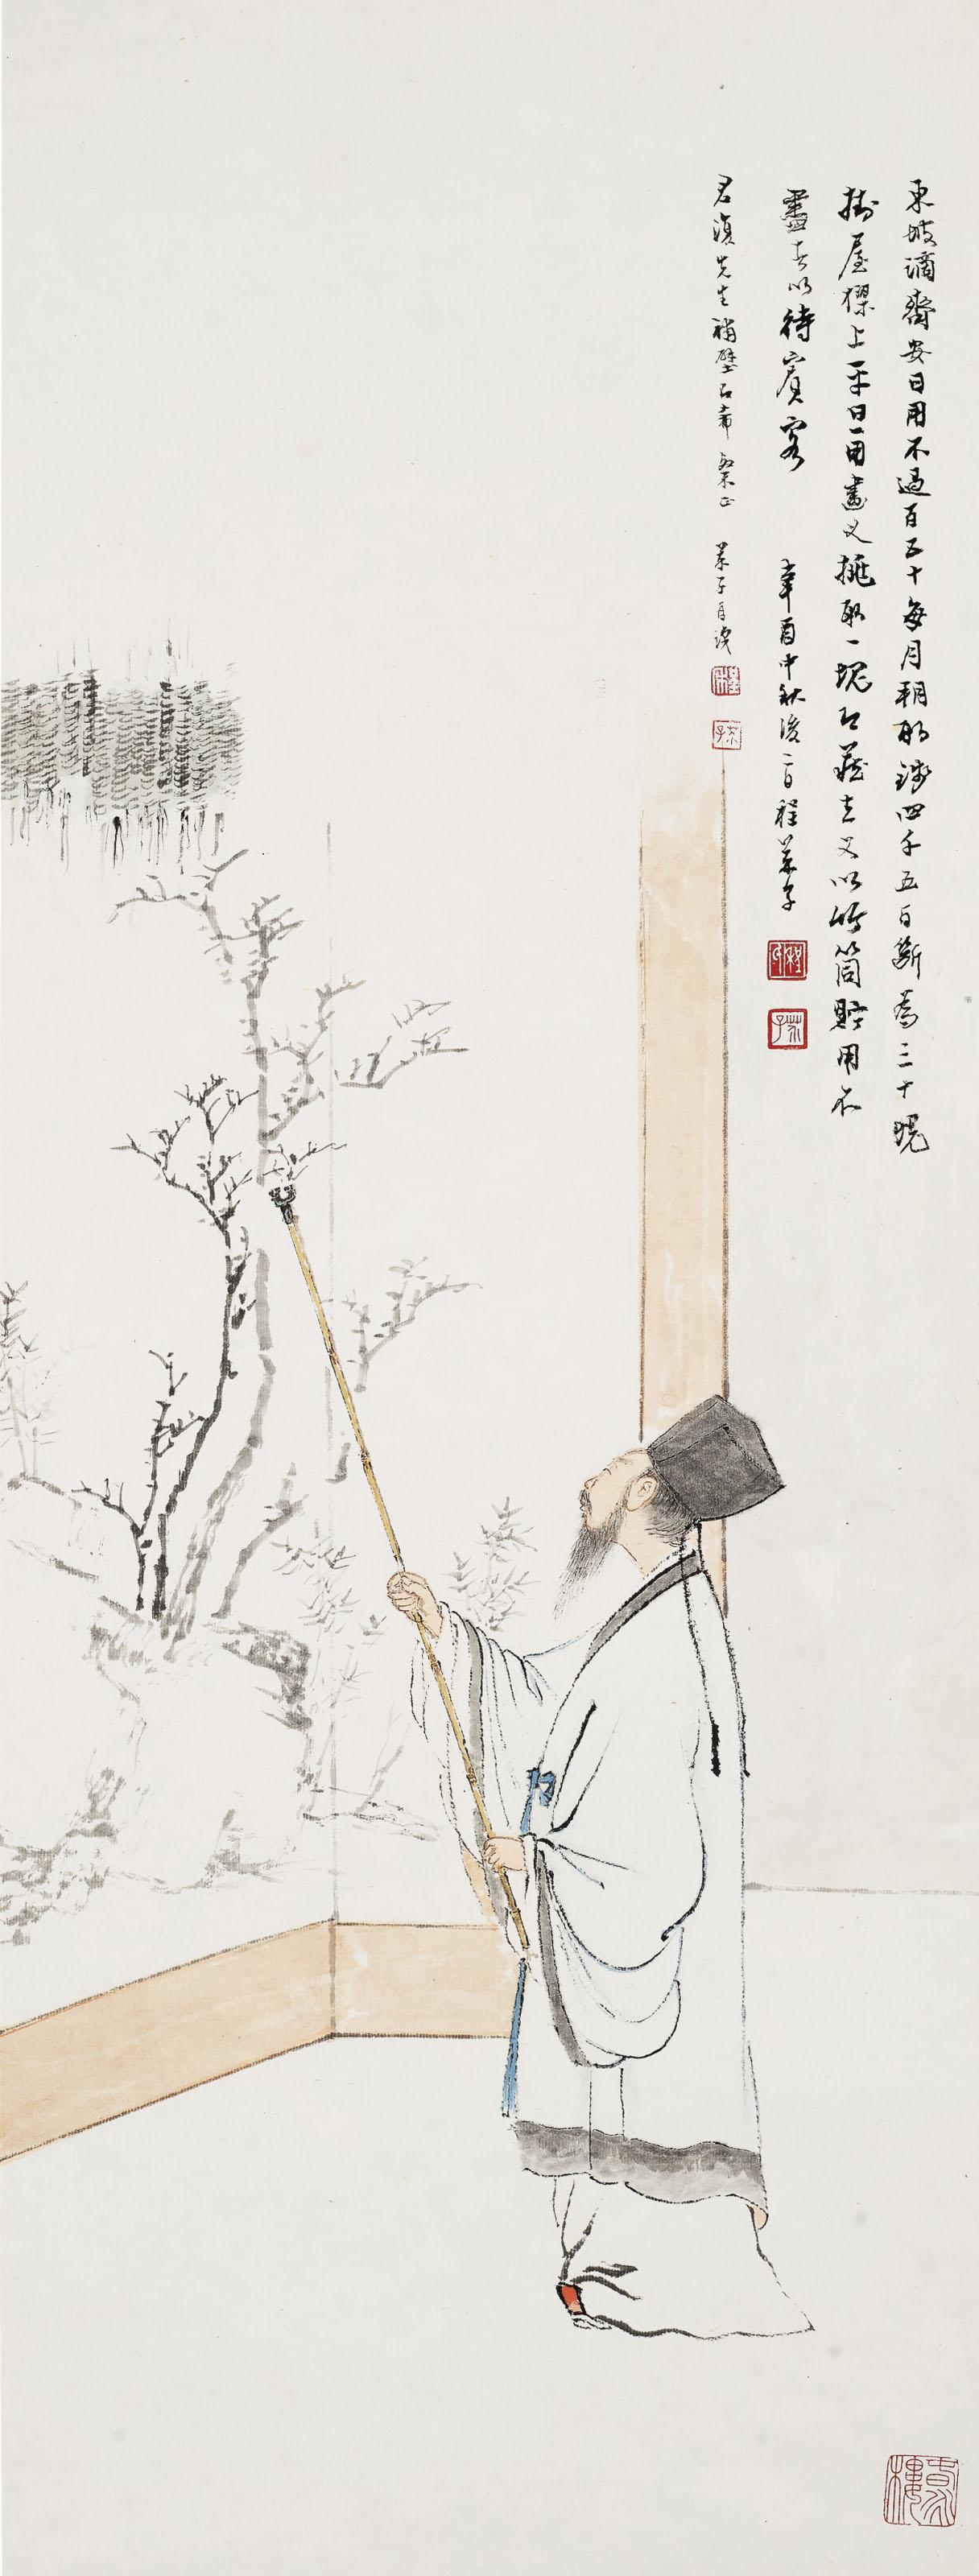 東坡謫齋安日用不過百五十每月朔取錢四千五百斷為三十塊
掛屋樑上平旦用畫叉挑取一塊即藏去叉以竹筒貯用不
盡者以待賓客
辛酉中秋後二日程芥子
君復先生補壁即希 粲正
芥子
芥子
芥子
樓